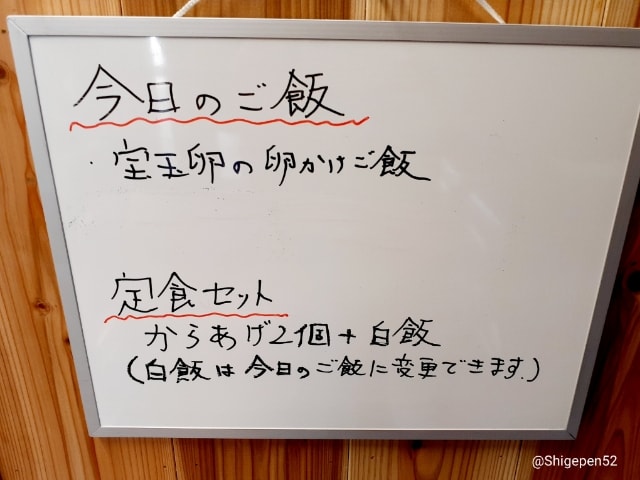 今日のご飯
・宝玉卵の卵かけご飯
定食セット
からあげ2個+白飯
(白飯は今日のご飯に変更できます。)
@Shigepen52